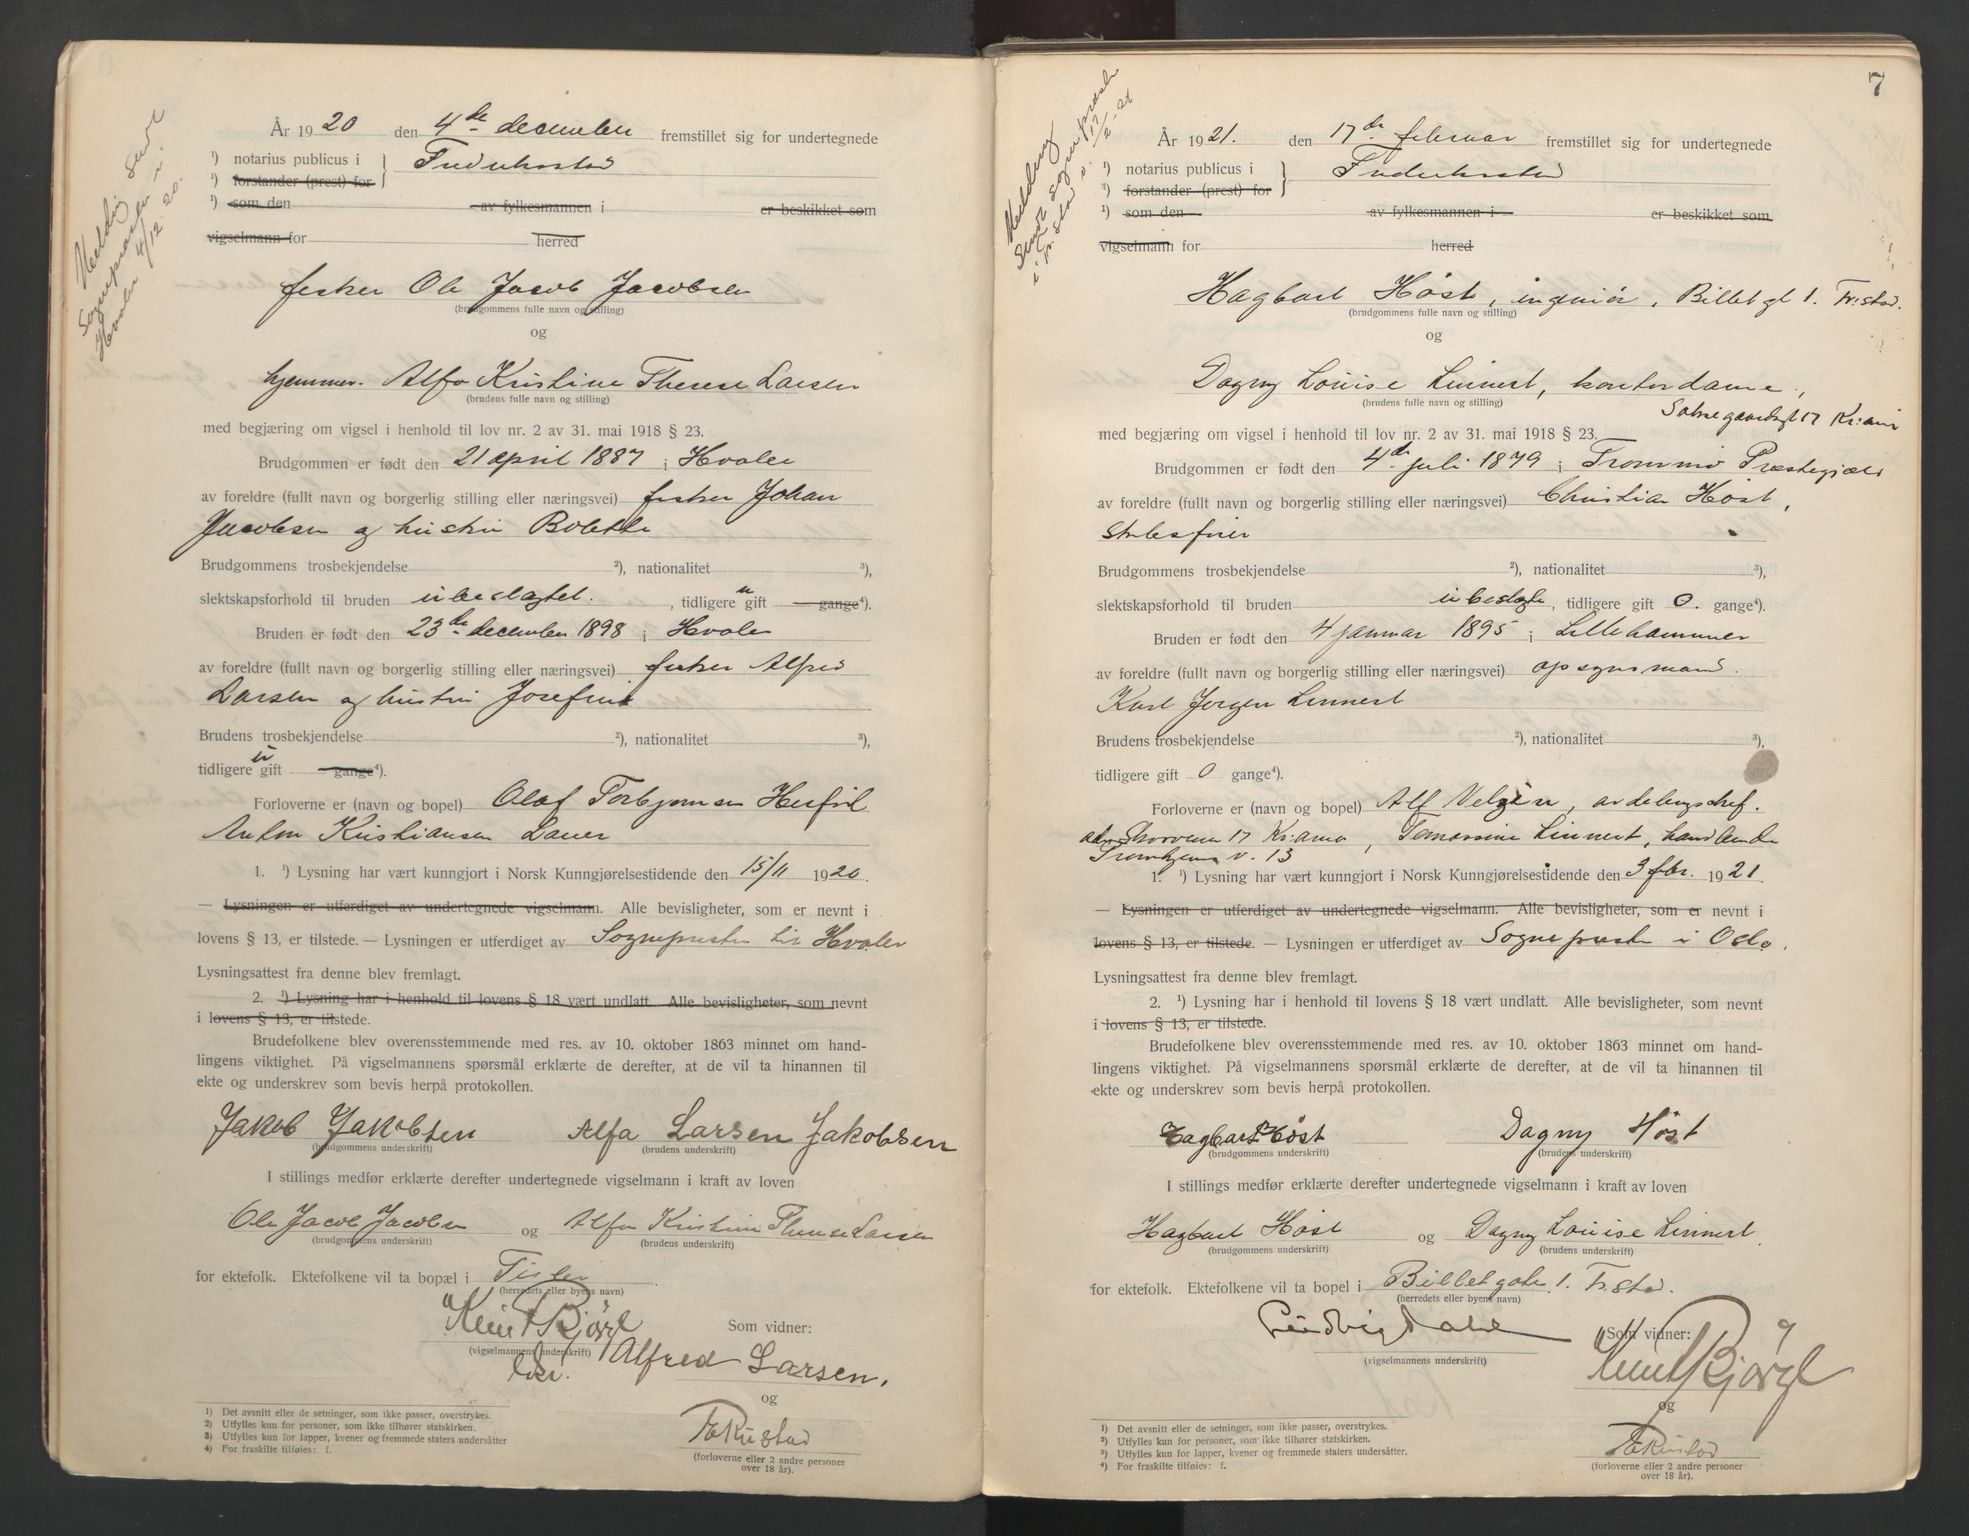 Meldig sendt
Sognepresten i
Hvaler 4/12 20.
År 1920 den 4de december fremstillet sig for undertegnede
¹) notarius publicus i } Fredrikstad
¹) forstander (prest) for
¹) som den av fylkesmannen i er beskikket som
vigselmann for herred
fisker Ole Jacob Jacobsen
(brudgommens fulle navn og stilling)
og
hjemmev. Alfa Kristine Therese Larsen
(brudens fulle navn og stilling)
med begjæring om vigsel i henhold til lov nr. 2 av 31. mai 1918 § 23.
Brudgommen er født den 21 april 1887 i Hvaler
av foreldre (fullt navn og borgerlig stilling eller næringsvei) fisker Johan
Jacobsen og hustru Bolette
Brudgommens trosbekjendelse ²), nationalitet ³),
slektskapsforhold til bruden ubeslægtet. , tidligere u gift gange⁴).
Bruden er født den 23de december 1898 i Hvaler
av foreldre (fullt navn og borgerlig stilling eller næringsvei) fisker Alfred
Larsen og hustru Josefine
Brudens trosbekjendelse ²), nationalitet ³),
tidligere u gift gange⁴).
Forloverne er (navn og bopel) Olaf Torbjørnsen Herføl
Anton Kristiansen Lauer
1. ¹) Lysning har vært kunngjort i Norsk Kunngjørelsestidende den 15/11 1920.
— Lysningen er utferdiget av undertegnede vigselmann. Alle bevisligheter, som er nevnt i
lovens § 13, er tilstede. — Lysningen er utferdiget av Sognepresten til Hvaler
Lysningsattest fra denne blev fremlagt.
2. ¹) Lysning har i henhold til lovens § 18 vært undlatt. Alle bevisligheter, som nevnt
i lovens § 13, er tilstede.
Brudefolkene blev overensstemmende med res. av 10. oktober 1863 minnet om hand-
lingens viktighet. På vigselmannens spørsmål erklærte de derefter, at de vil ta hinannen til
ekte og underskrev som bevis herpå protokollen.
Jakob Jakobsen Alfa Larsen Jakobsen
(brudgommens underskrift) (brudens underskrift)
I stillings medfør erklærte derefter undertegnede vigselmann i kraft av loven
Ole Jacob Jacobsen og Alfa Kristine Therese Larsen
(brudgommens underskrift) (brudens underskrift)
for ektefolk. Ektefolkene vil ta bopæl i Tisler
(herredets eller byens navn)
Knut Bjørgl
Som vidner:
(vigselmannens underskrift)
Alfred Larsen.
og
Fakustad
(forloverne eller 2 andre personer
over 18 år).
1) Det avsnitt eller de setninger, som ikke passer, overstrykes.
2) Utfylles kun for personer, som ikke tilhører statskirken.
3) Utfylles kun for lapper, kvener og fremmede staters undersåtter
4) For fraskilte tilføies: f.
7
Meddeling
sendt sognepræsten
i Fr.stad v. 17/2-21
År 1921. den 17de februar fremstillet sig for undertegnede
¹) notarius publicus i } Fredrikstad
¹) forstander (prest) for
¹) som den av fylkesmannen i er beskikket som
vigselmann for herred
Hagbart Høst, ingeniør, Billetgt 1. Fr:stad.
(brudgommens fulle navn og stilling)
og
Dagny Louise Linnert, kontordame,
(brudens fulle navn og stilling)
17 Kr:ania
med begjæring om vigsel i henhold til lov nr. 2 av 31. mai 1918 § 23.
Brudgommen er født den 4de juli 1879 i Tromsø Præstegjæld
av foreldre (fullt navn og borgerlig stilling eller næringsvei) Christian Høst,
Brudgommens trosbekjendelse ²), nationalitet ³),
slektskapsforhold til bruden ubeslægt, tidligere gift 0. gange⁴).
Bruden er født den 4 januar 1895 i Lillehammer
av foreldre (fullt navn og borgerlig stilling eller næringsvei) opsynsmand.
Karl Jørgen Linnert
Brudens trosbekjendelse ²), nationalitet ³),
tidligere gift 0 gange⁴).
Forloverne er (navn og bopel) Alf Velgin, avdelingschef.
17 Kr:ania, Tomassine Linnert,
v. 13
1. ¹) Lysning har vært kunngjort i Norsk Kunngjørelsestidende den 3 fbr. 1921.
— Lysningen er utferdiget av undertegnede vigselmann. Alle bevisligheter, som er nevnt i
lovens § 13, er tilstede. — Lysningen er utferdiget av Sognepresten i Oslo.
Lysningsattest fra denne blev fremlagt.
2. ¹) Lysning har i henhold til lovens § 18 vært undlatt. Alle bevisligheter, som nevnt
i lovens § 13, er tilstede.
Brudefolkene blev overensstemmende med res. av 10. oktober 1863 minnet om hand-
lingens viktighet. På vigselmannens spørsmål erklærte de derefter, at de vil ta hinannen til
ekte og underskrev som bevis herpå protokollen.
Hagbart Høst Dagny Høst
(brudgommens underskrift) (brudens underskrift)
I stillings medfør erklærte derefter undertegnede vigselmann i kraft av loven
Hagbart Høst og Dagny Louise Linnert
(brudgommens underskrift) (brudens underskrift)
for ektefolk. Ektefolkene vil ta bopel i Billetgate 1. Fr.stad.
(herredets eller byens navn)
Ludvig Dahl
Som vidner:
(vigselmannens underskrift)
Knut Bjørgl
og
Fakustad
(forloverne eller 2 andre personer
over 18 år).
1) Det avsnitt eller de setninger, som ikke passer, overstrykes.
2) Utfylles kun for personer, som ikke tilhører statskirken.
3) Utfylles kun for lapper, kvener og fremmede staters undersåtter.
4) For fraskilte tilføies: f.